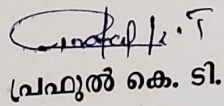 പ്രഫുൽ കെ. ടി.